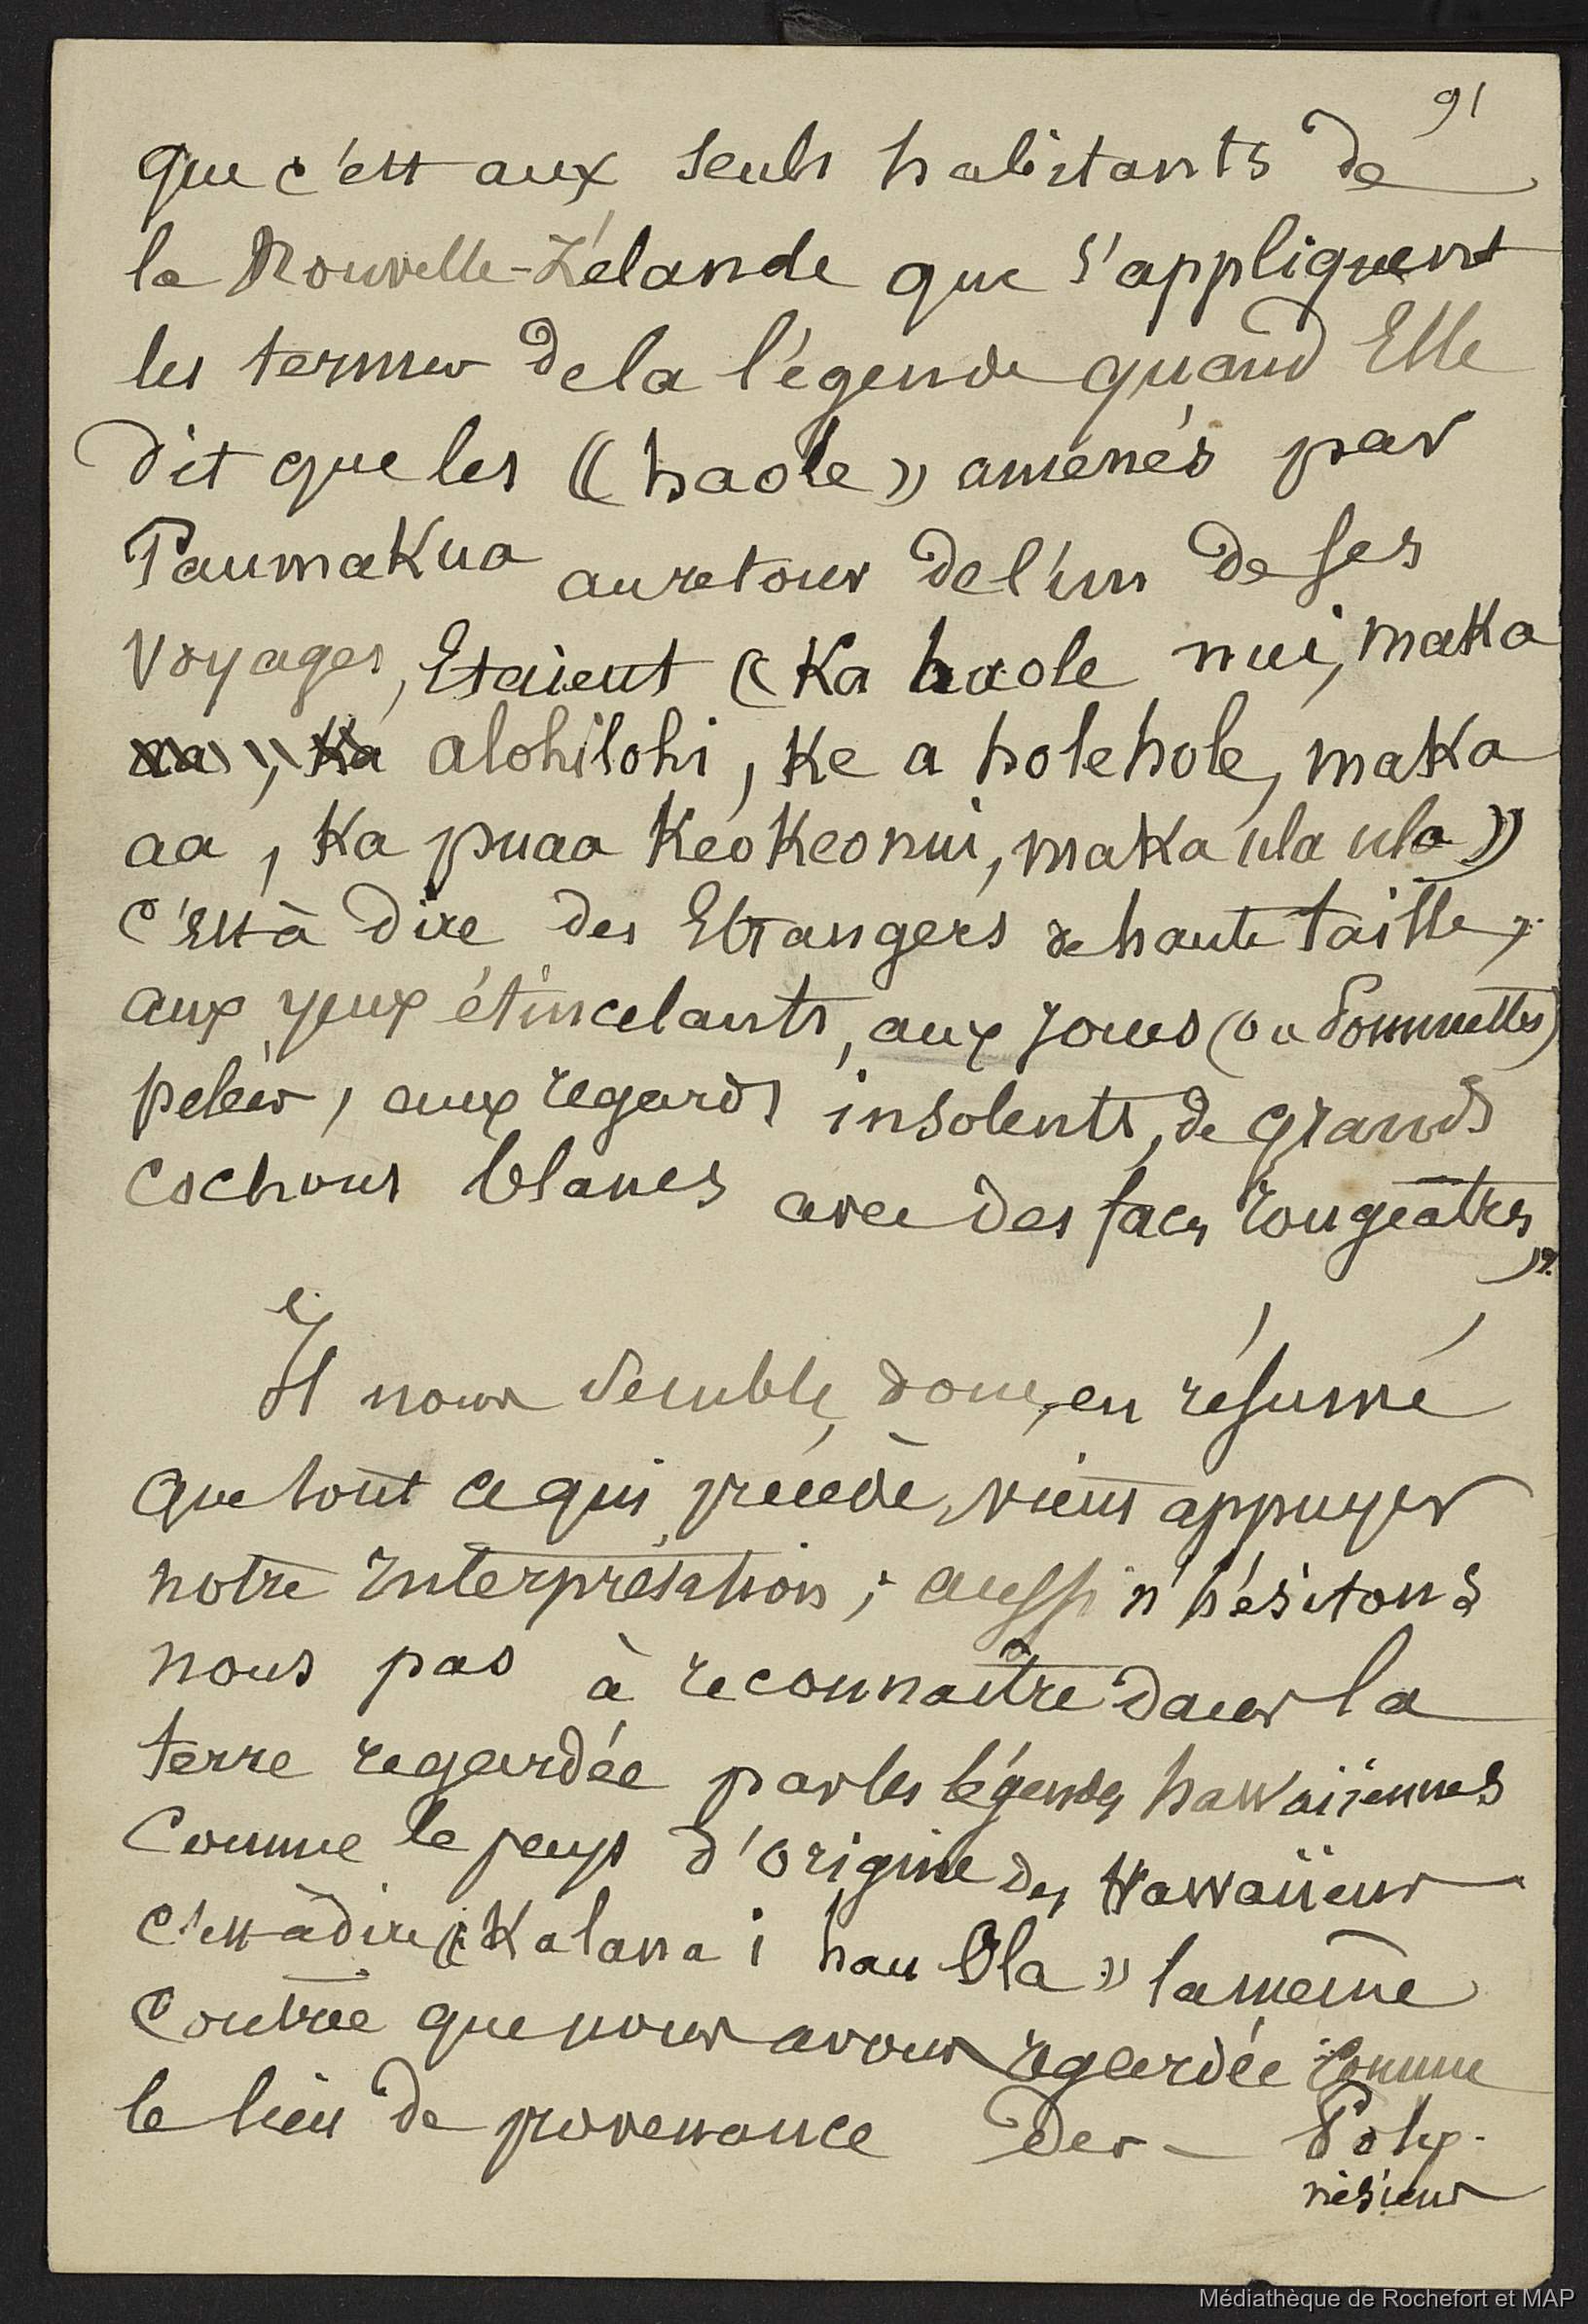 91
que c'est aux seuls habitants de
la Nouvelle-Zélande que s'appliquent
les termes de la légende quand Elle
dit que les « haole » amenés par
Paumakua au retour de l'un de ses
voyages, Etaient « Ka haole nui, maka
aa, Ka alohilohi, Ke a holehole, maka
aa, Ka puaa Keokeo nui, maka ula ula »
C'est à dire des Etrangers de haute taille,
aux yeux étincelants, aux joues (ou Pommettes)
pelées, aux regards insolents, de grands
cochons blancs avec des faces rougeâtres ».
Il nous semble, donc, en résumé
que tout ce qui précède, vient appuyer
notre Interprétation ; aussi n'hésitons
nous pas à reconnaître dans la
terre regardée par les légendes hawaiiennes
Comme le pays d'origine des Hawaiiens
c'est à dire « Kalana i hau Ola » la même
Contrée que nous avons regardée comme
le lieu de provenance des Poly-
nésiens
Médiathèque de Rochefort et MAP